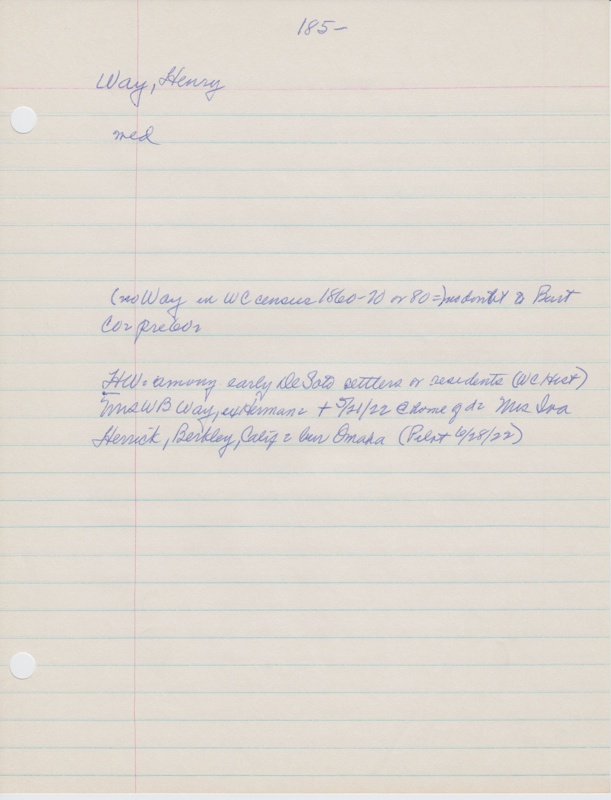 185-
Way, Henry
med
(no Way in WC census 1860-70 or 80 = no doubt to Burt
Co=
HW= among early DeSoto settlers or residents (WC Hist)
Mrs WB Way, ex Herman = + 5/21/22 @ home of d= Mrs Ira
Herrick, Berkley, Calif = bur Omaha (Pilot 6/28/22)